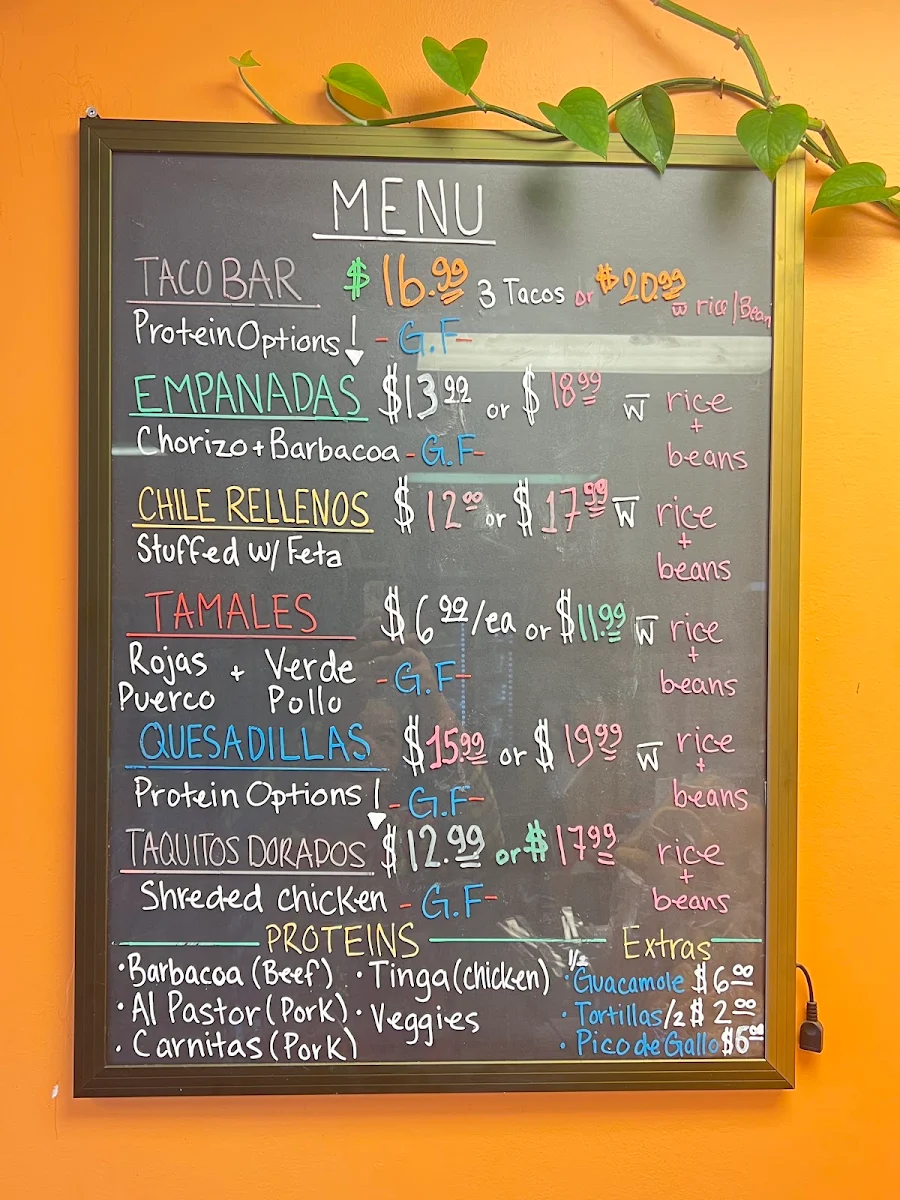 MENU
TACO BAR $16.99 3 Tacos or $20.99 w̅ rice/Bean
Protein Options! - G.F-
EMPANADAS $13.99 or $18.99 w̅ rice + beans
Chorizo + Barbacoa - G.F-
CHILE RELLENOS $12.00 or $17.99 w̅ rice + beans
Stuffed w/ Feta
TAMALES $6.99/ea or $11.99 w̅ rice + beans
Rojas + Verde - G.F-
Puerco Pollo
QUESADILLAS $15.99 or $19.99 w̅ rice + beans
Protein Options! - G.F-
TAQUITOS DORADOS $12.99 or $17.99 rice + beans
Shreded chicken - G.F-
PROTEINS
• Barbacoa (Beef) • Tinga (chicken)
• Al Pastor (Pork) • Veggies
• Carnitas (Pork)
Extras
• 1/2 Guacamole $6.00
• Tortillas/2 $2.00
• Pico de Gallo $6.00